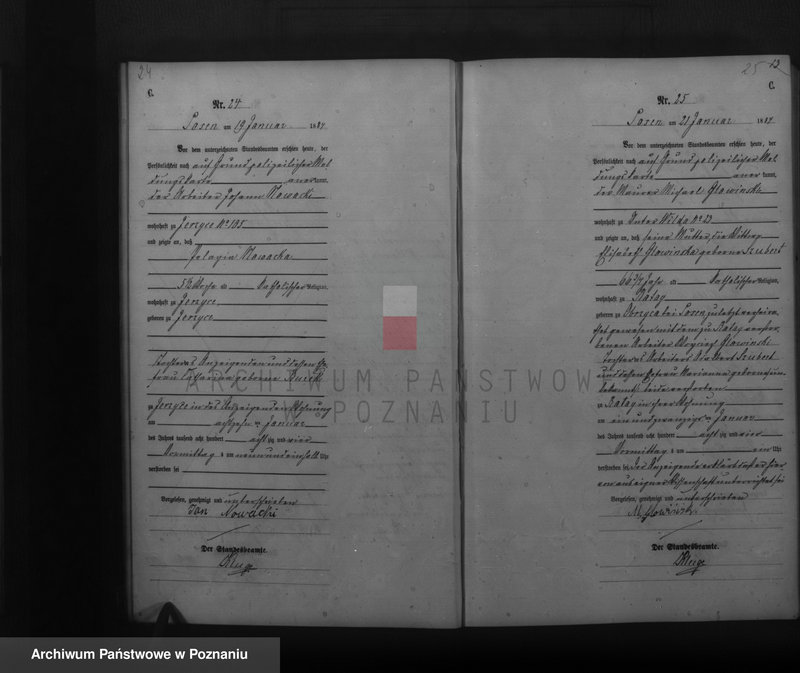 24
C.
Nr. 24
Posen am 19 Januar 1884
Vor dem unterzeichneten Standesbeamten erschien heute, der
Persönlichkeit nach auf Grund polizeilicher Mel
dungskarte anerkannt,
der Arbeiter Johann Nowacki
wohnhaft zu Jerzyce No 105
und zeigte an, daß
Pelagia Nowacka
5½ Katholischer Religion,
wohnhaft zu Jerzyce
geboren zu Jerzyce
Tochter des Anzeigenden und dessen Ehe
frau Catharina geborene
zu Jerzyce in des Anzeigenden Wohnung
am achtzehn ten Januar
des Jahres tausend acht hundert achtzig und vier
Vormittags um neun und einhalb Uhr
verstorben sei
Vorgelesen, genehmigt und unterschrieben
Jan Nowacki
Der Standesbeamte.
25
C.
Nr. 25
Posen am 21 Januar 1884
Vor dem unterzeichneten Standesbeamten erschien heute, der
Persönlichkeit nach auf Grund polizeilicher Mel
dungskarte anerkannt,
der Maurer Michael Glowinski
wohnhaft zu Unter Wilda No 29
und zeigte an, daß seine Mutter, die Wittwe
Elisabeth Glowinska geborene Szubert
66 Jahr Katholischer Religion,
wohnhaft zu Rataj
geboren zu Obrzyca bei Posen, zuletzt verheira
thet gewesen mit dem zu Rataj verstor
benen Arbeiter Glowinski
Tochter des Arbeiters Szubert
und dessen Ehefrau Marianna geborene
unbekannt beide verstorben
zu Rataj in ihrer Wohnung
am ein und zwanzigs ten Januar
des Jahres tausend acht hundert achtzig und vier
Vormittags um ein Uhr
verstorben sei, Der Anzeigende erklärt daß er hier
von aus eigner Wissenschaft unterrichtet sei
Vorgelesen, genehmigt und unterschrieben
M. Glowinski
Der Standesbeamte.
ARCHIWUM PAŃSTWOWE
POZNANIU
Archiwum Państwowe w Poznaniu